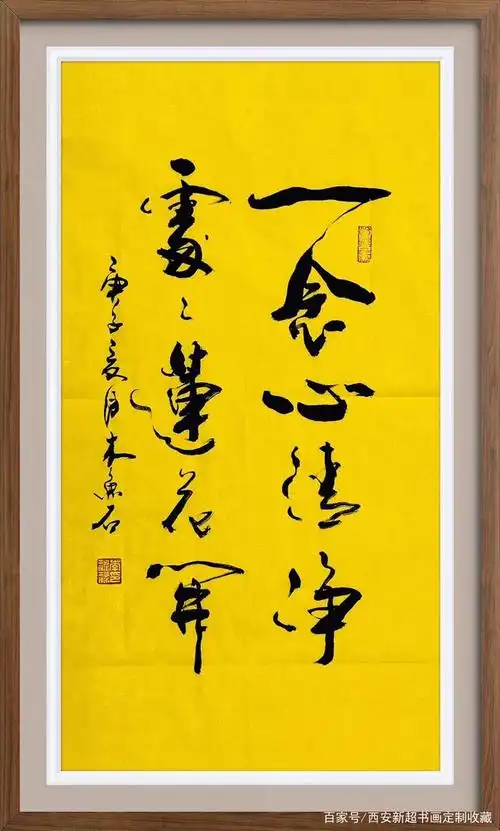 一念心清净
處〻蓮花開
庚子夏月木魚石
百家号/西安新超书画定制收藏